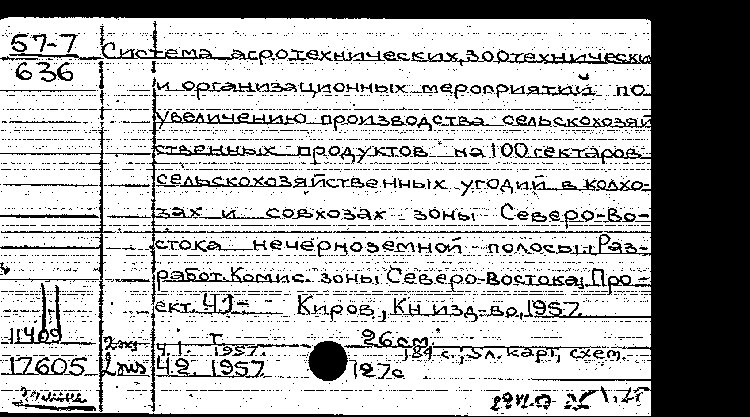 57-7
636
Система агротехнических, зоотехнически
и организационных мероприятий по
увеличению производства сельскохозяй
ственных продуктов на 100 гектаров
сельскохозяйственных угодий в колхо-
зах и совхозах зоны Северо-Во-
стока нечерноземной полосы. Раз-
работ. Комис. зоны Северо-Востока, Про-
ект. Ч.1- Киров, Кн. изд-во, 1957.
26 см.
11409 2 экз Ч. 1. 1957. 184 с.; 3 л. карт, схем.
17605 2 экз Ч.2. 1957 127 с